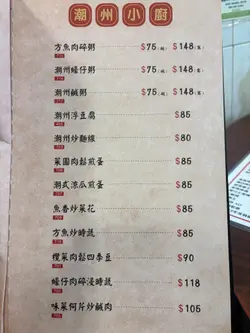 潮州小廚
方魚肉碎粥 $75 $148
潮州蠔仔粥 $75 $148
潮州鹹粥 $75 $148
潮州浮豆腐 $85
潮州炒麵線 $80
菜圃肉鬆煎蛋 $85
潮式涼瓜煎蛋 $85
魚香炒菜花 $85
方魚炒時蔬 $85
欖菜肉鬆四季豆 $90
蠔仔肉碎浸時蔬 $118
味菜何斥炒鹹肉 $105